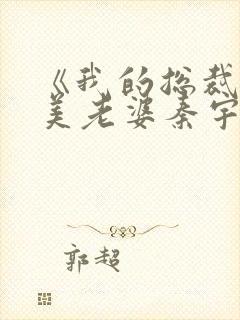 《我的总裁
美老婆秦宇
郭超